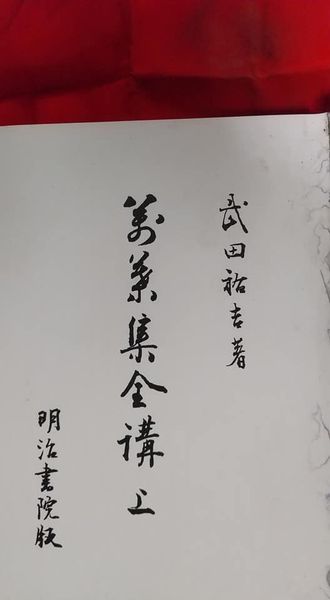 武田祐吉著
萬葉集全講 上
明治書院版